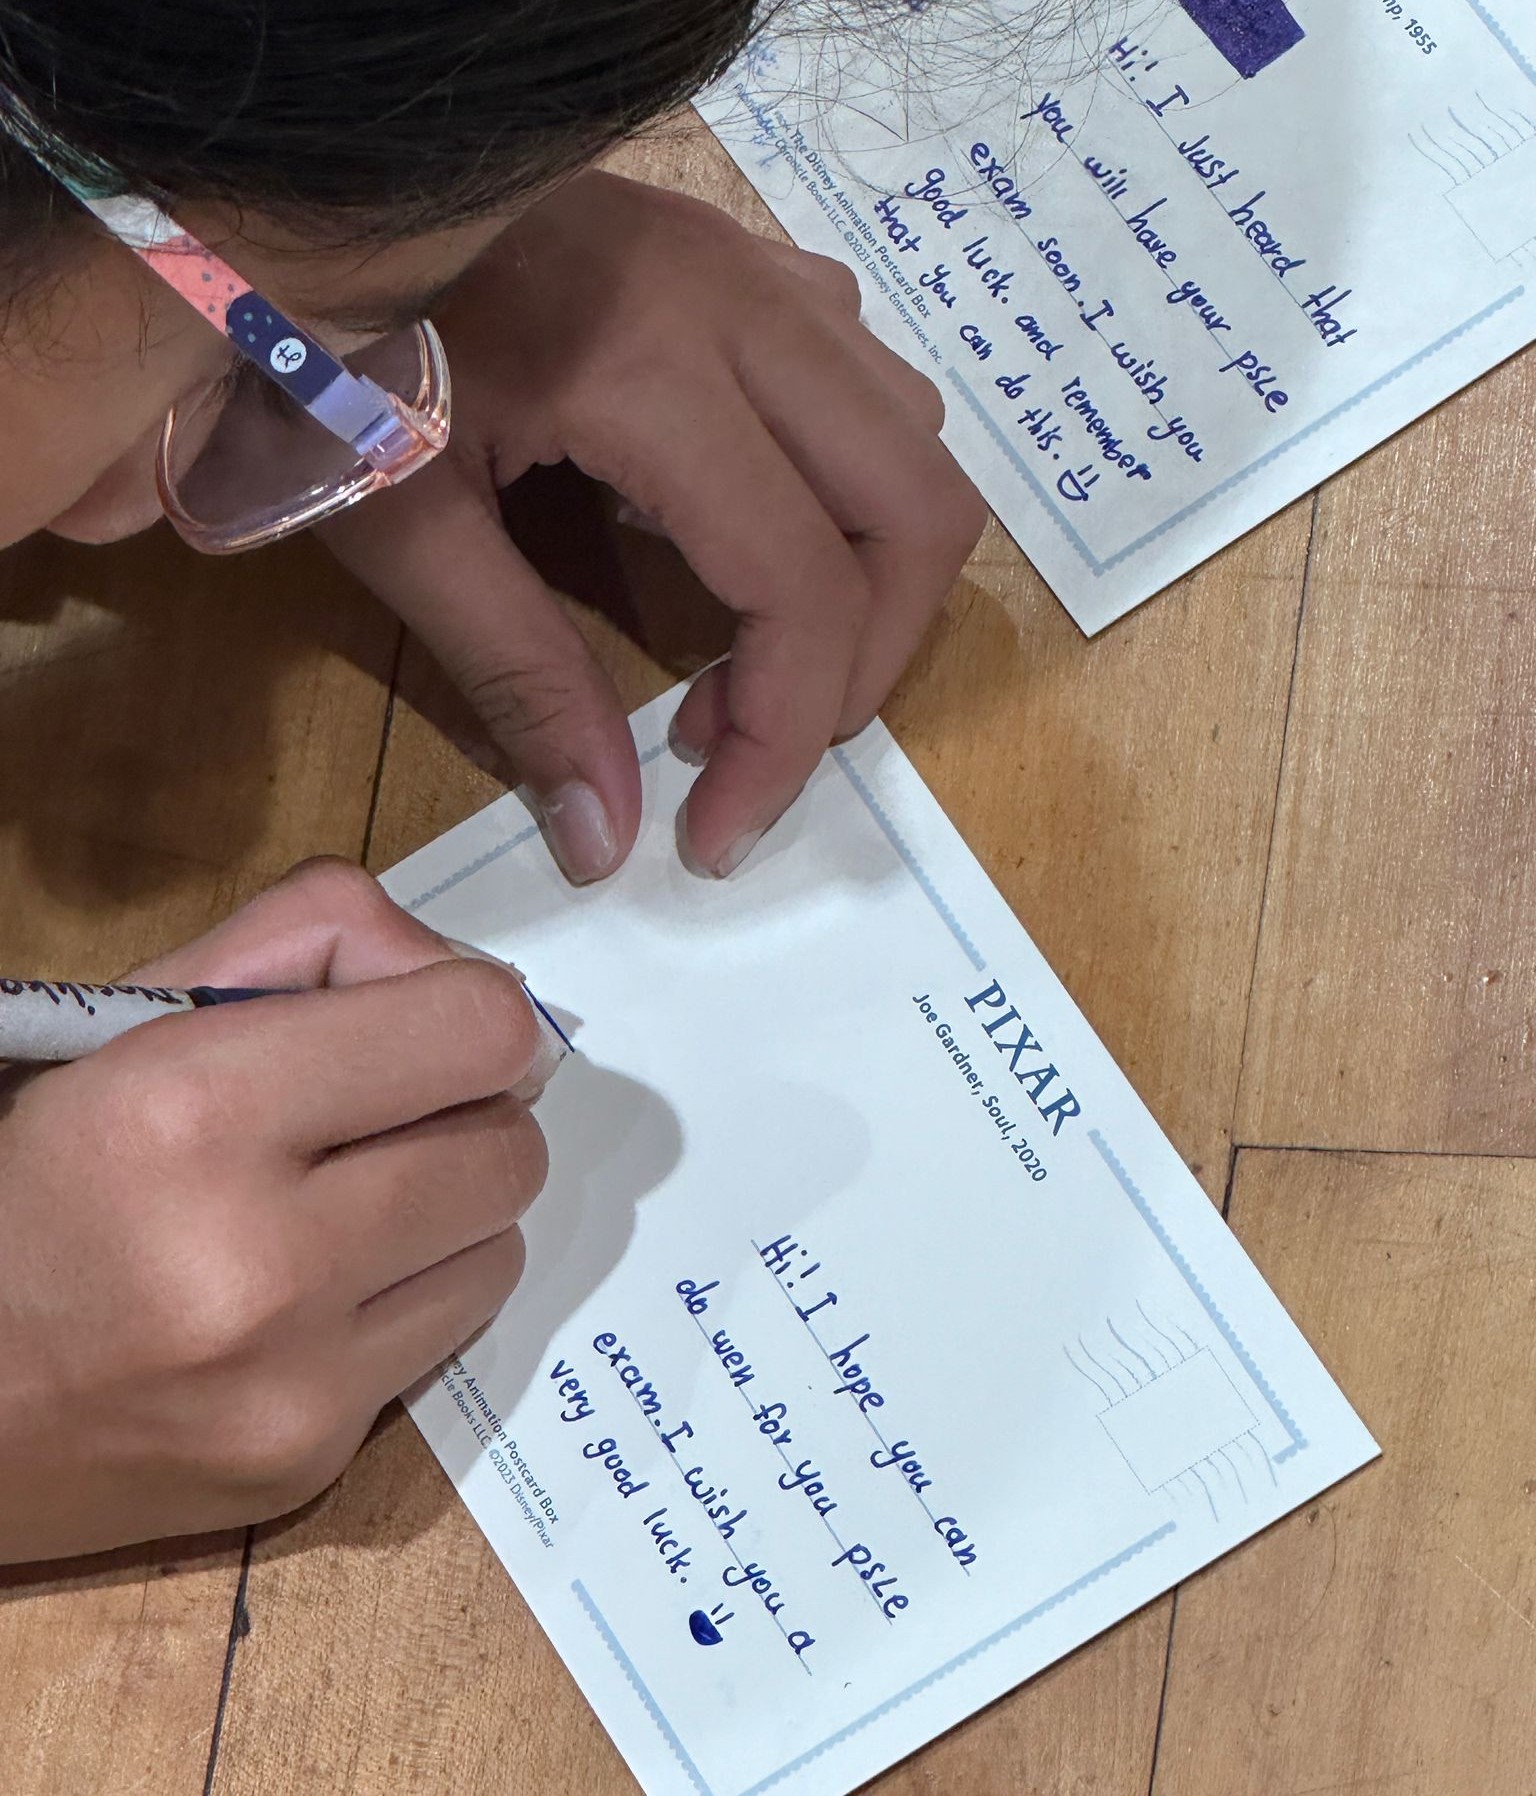 mp, 1955
Hi! I Just heard that
you will have your psle
exam soon. I wish you
good luck. and remember
that you can do this.
The Disney Animation Postcard Box
Chronicle Books LLC. ©2023 Disney Enterprises, Inc.
PIXAR
Joe Gardner, Soul, 2020
Hi! I hope you can
do well for you psle
exam. I wish you a
very good luck.
ney Animation Postcard Box
icle Books LLC. ©2023 Disney/Pixar